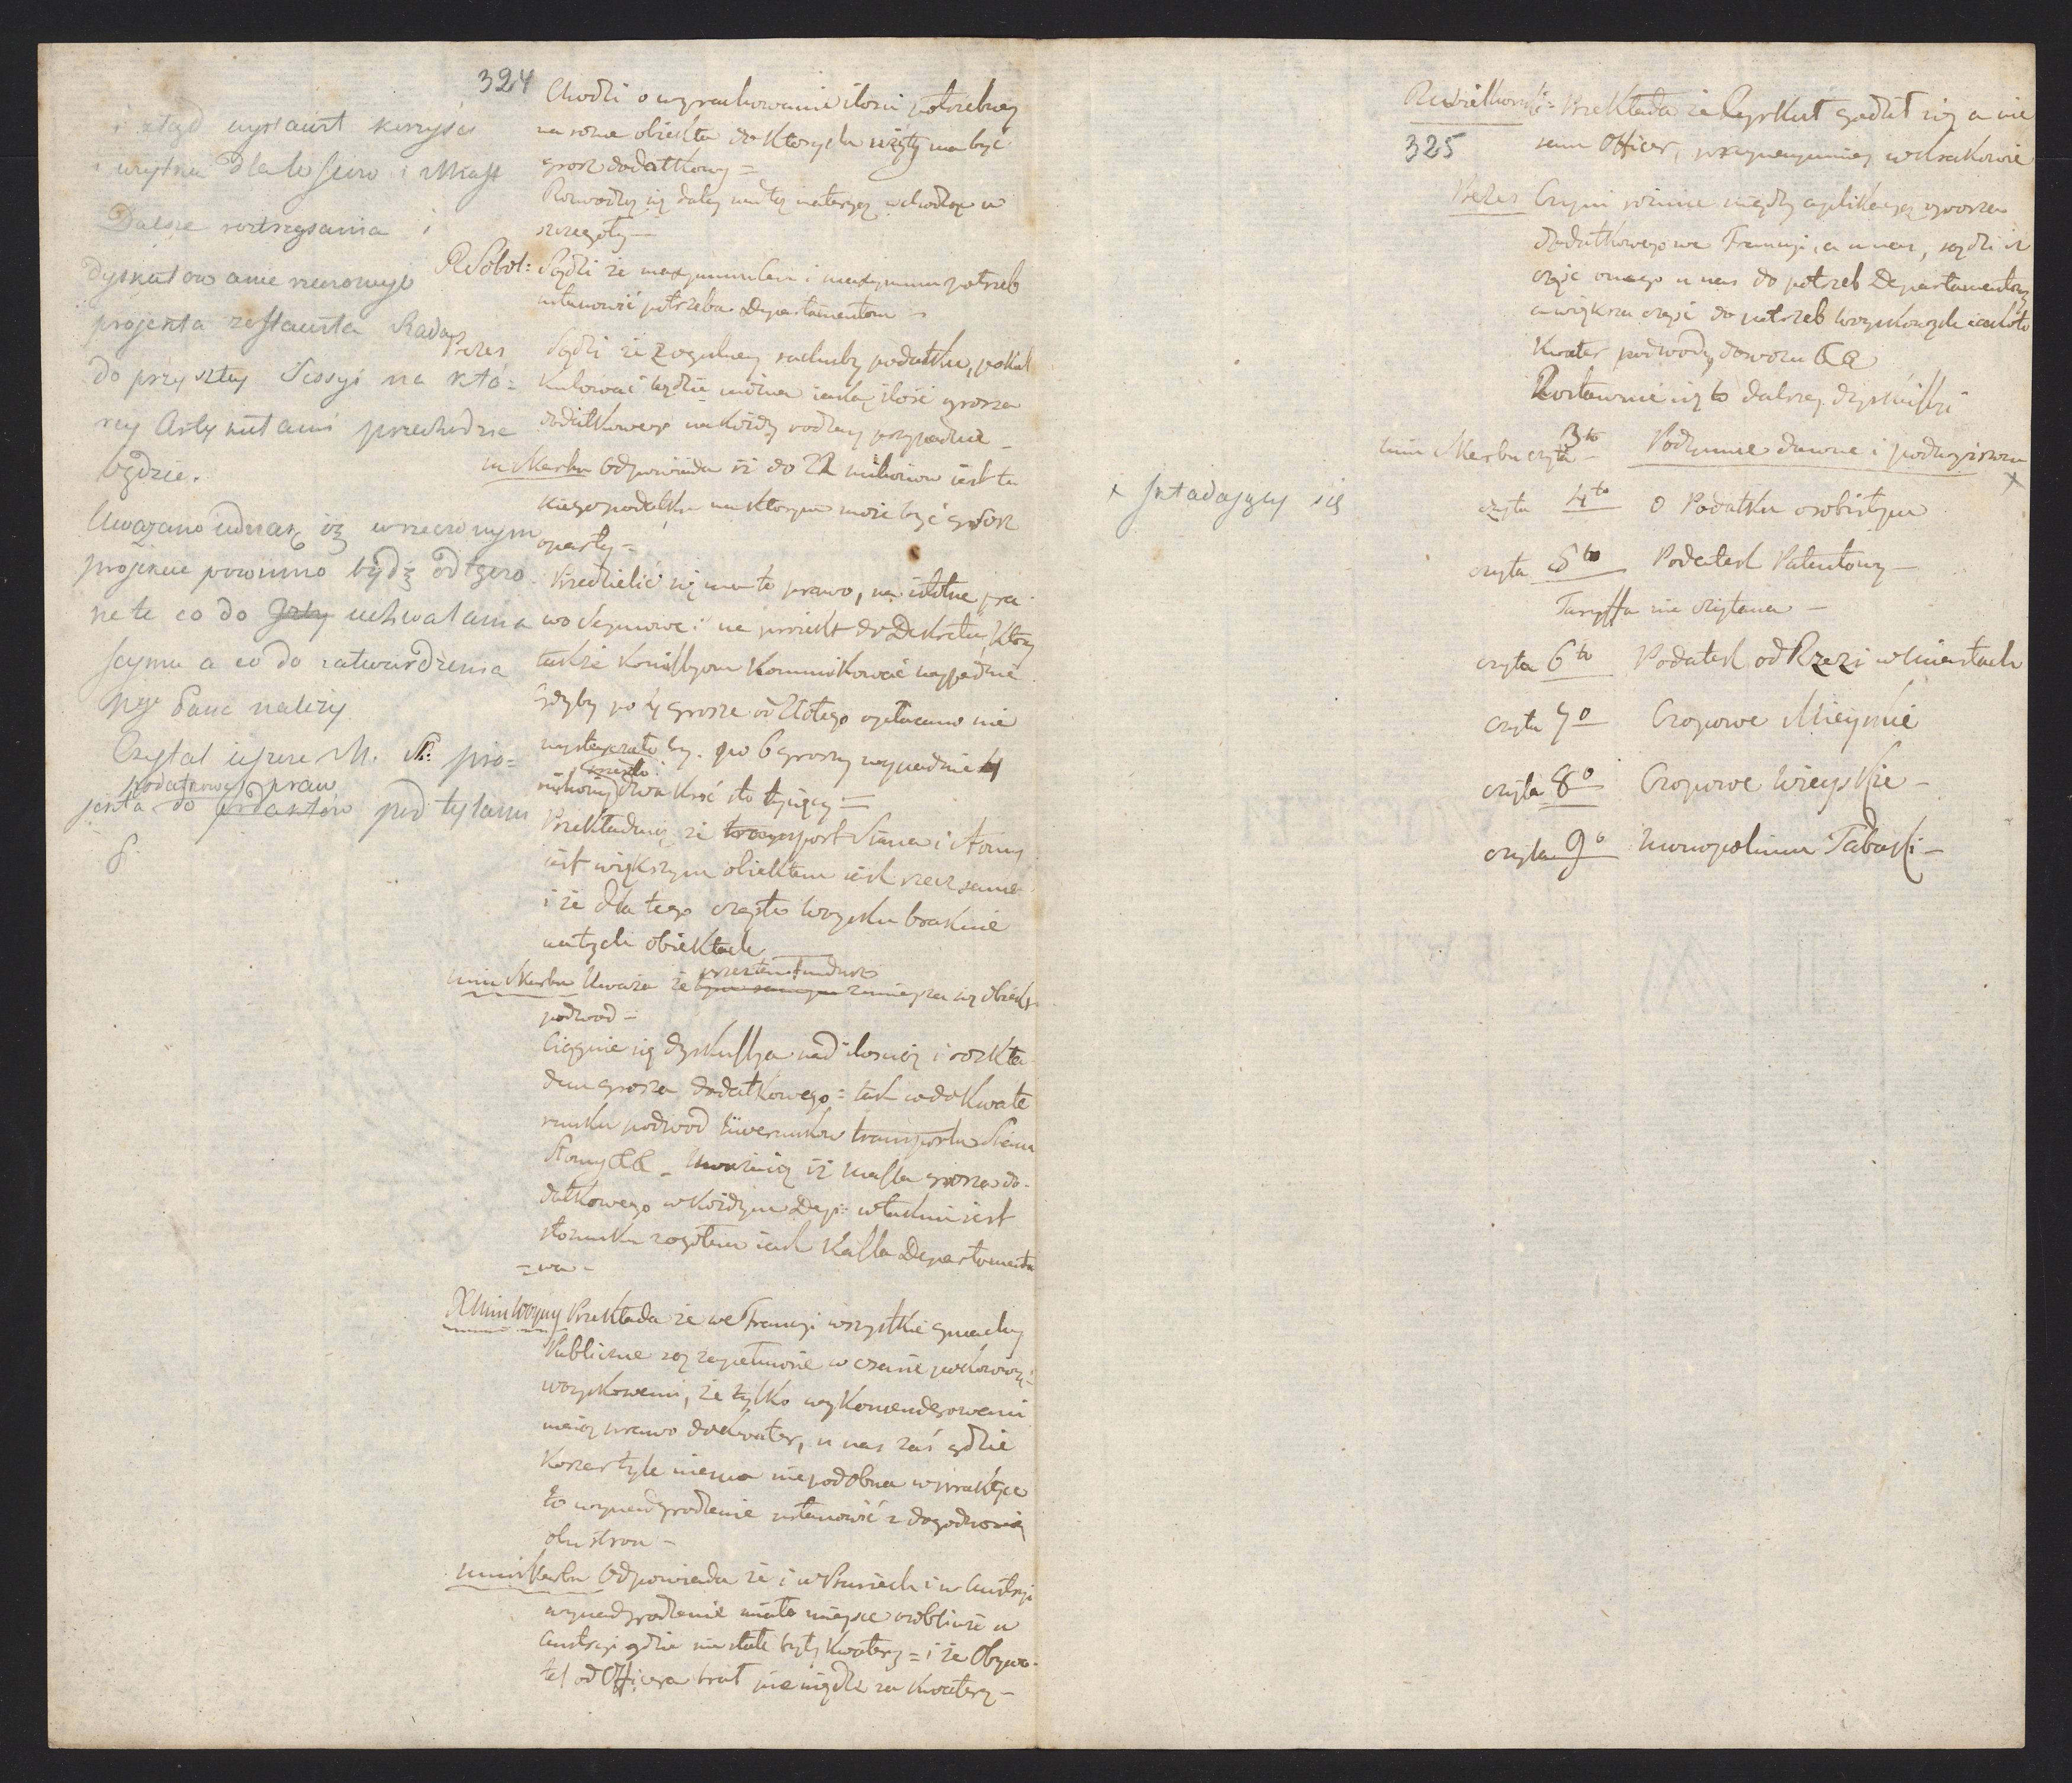 324
i ztąd wystawił korzyści
i użytku dla Wsiow i Miast
Dalsze roztrząsania i
dyskutowanie rzeczonego
projekta zostawiła Rada
do przyszłey Sessyi na któ=
rey Artykułami przechodzić
będzie.
Uważano jednak iż w rzeczonym
projekcie powinno bydź oddzielo
ne te co do uchwalania
seymu a co do zatwierdzenia
należy
Czytał jeszcze M. Sk: pro=
podatkowych praw
jekta do podatków pod tytułem
8.
Chodzi o wyrachowanie ilosci potrzebney
na rożne obiekta do ktorych użyty ma być
grosz dodatkowy =
Rozwodzą się daley nad tą materyą wchodząc w
szczegoły —
R Sobol: Sądzi że maxymum i potrzeb
ustanowić potrzeba Departamentom -
Prezes Sądzi że z ogulney rachuby podatku, poskal
kulować będzie można iaka ilość grosza
dodatkowego na każdy rodzay przypadnie -
M Skarbu Odpowiada iż do 22 milionow iest ta
kiego podatku na ktorym może być grosz
oparty =
Rozdzielić się ma to prawo, na istotne pra
wo Seymowe i na proiekt do Dekretu, ktory
także Komissyom Kommunikować wypadnie
Gdyby po 4 grosze od Złotego opłacano nie
wystarczało by. po 6 groszy wypadnie 4
miliony dwa kroć sto tysięcy =
Przekładaią że transport Siana i słomy
iest większym obiektem iak rzecz sama
i że dla tego często Woysku braknie
na tych obiektach
przez ten Fundusz
Min Skarbu Uważa że tym samym zmnieysza się obiekt
podwod -
Ciągnie się dyskussya nad iloscią i rozkła
dem grosza dodatkowego = tak co do kwate
runku podwod liwerunkow transportu Siana
Słomy &&. Uważaią iż massa grosza do-
datkowego w każdym Dep: w takim iest
stosunku z ogołem iak Kassa Departamenta
= wa -
X Min Woyny Przekłada że we Francyi wszystkie gmachy
Publiczne są zapełnione w czasie pokoiowy=
woyskowemi, że tylko wykomenderowani
maią prawo do kwater, u nas zaś gdzie
Koszar tyle niema niepodobna w praktyce
to wynadgrodzenie ustanowić z dogodnością
obu stron -
Min Skarbu Odpowiada że i w Prusiech i w Austryi
wynadgrodzenie miało mieysce osobliwie w
Austryi gdzie nie stałe były Kwatery = i że Obywa-
tel od Officera brał pieniądze za kwatery -
325
Przekłada że Cyrkuł godził się a nie
sam Officer, przynaymniey w Krakowie
Prezes Czyni rożnice między aplikacyą grosza
dodatkowego we Francyi, a u nas, sądzi iż
częsc onego u nas do potrzeb Departamentowy
a większa częsć do potrzeb Woyskowych iako to
Kwater podwody dowozu &&
Zostawuie się to dalszey dyskussyi
Min Skarbu czyta 3to — Podymne dawne i podwyższone
x składający się
x
czyta 4to O Podatku osobistym
czyta 5to Podatek Patentowy —
Taryffa nie czytana —
czyta 6to Podatek od Rzezi w Miastach
czyta 7o Czopowe Mieyskie
czyta 8o Czopowe Wieyskie —
czyta 9o Monopolium Tabaki —